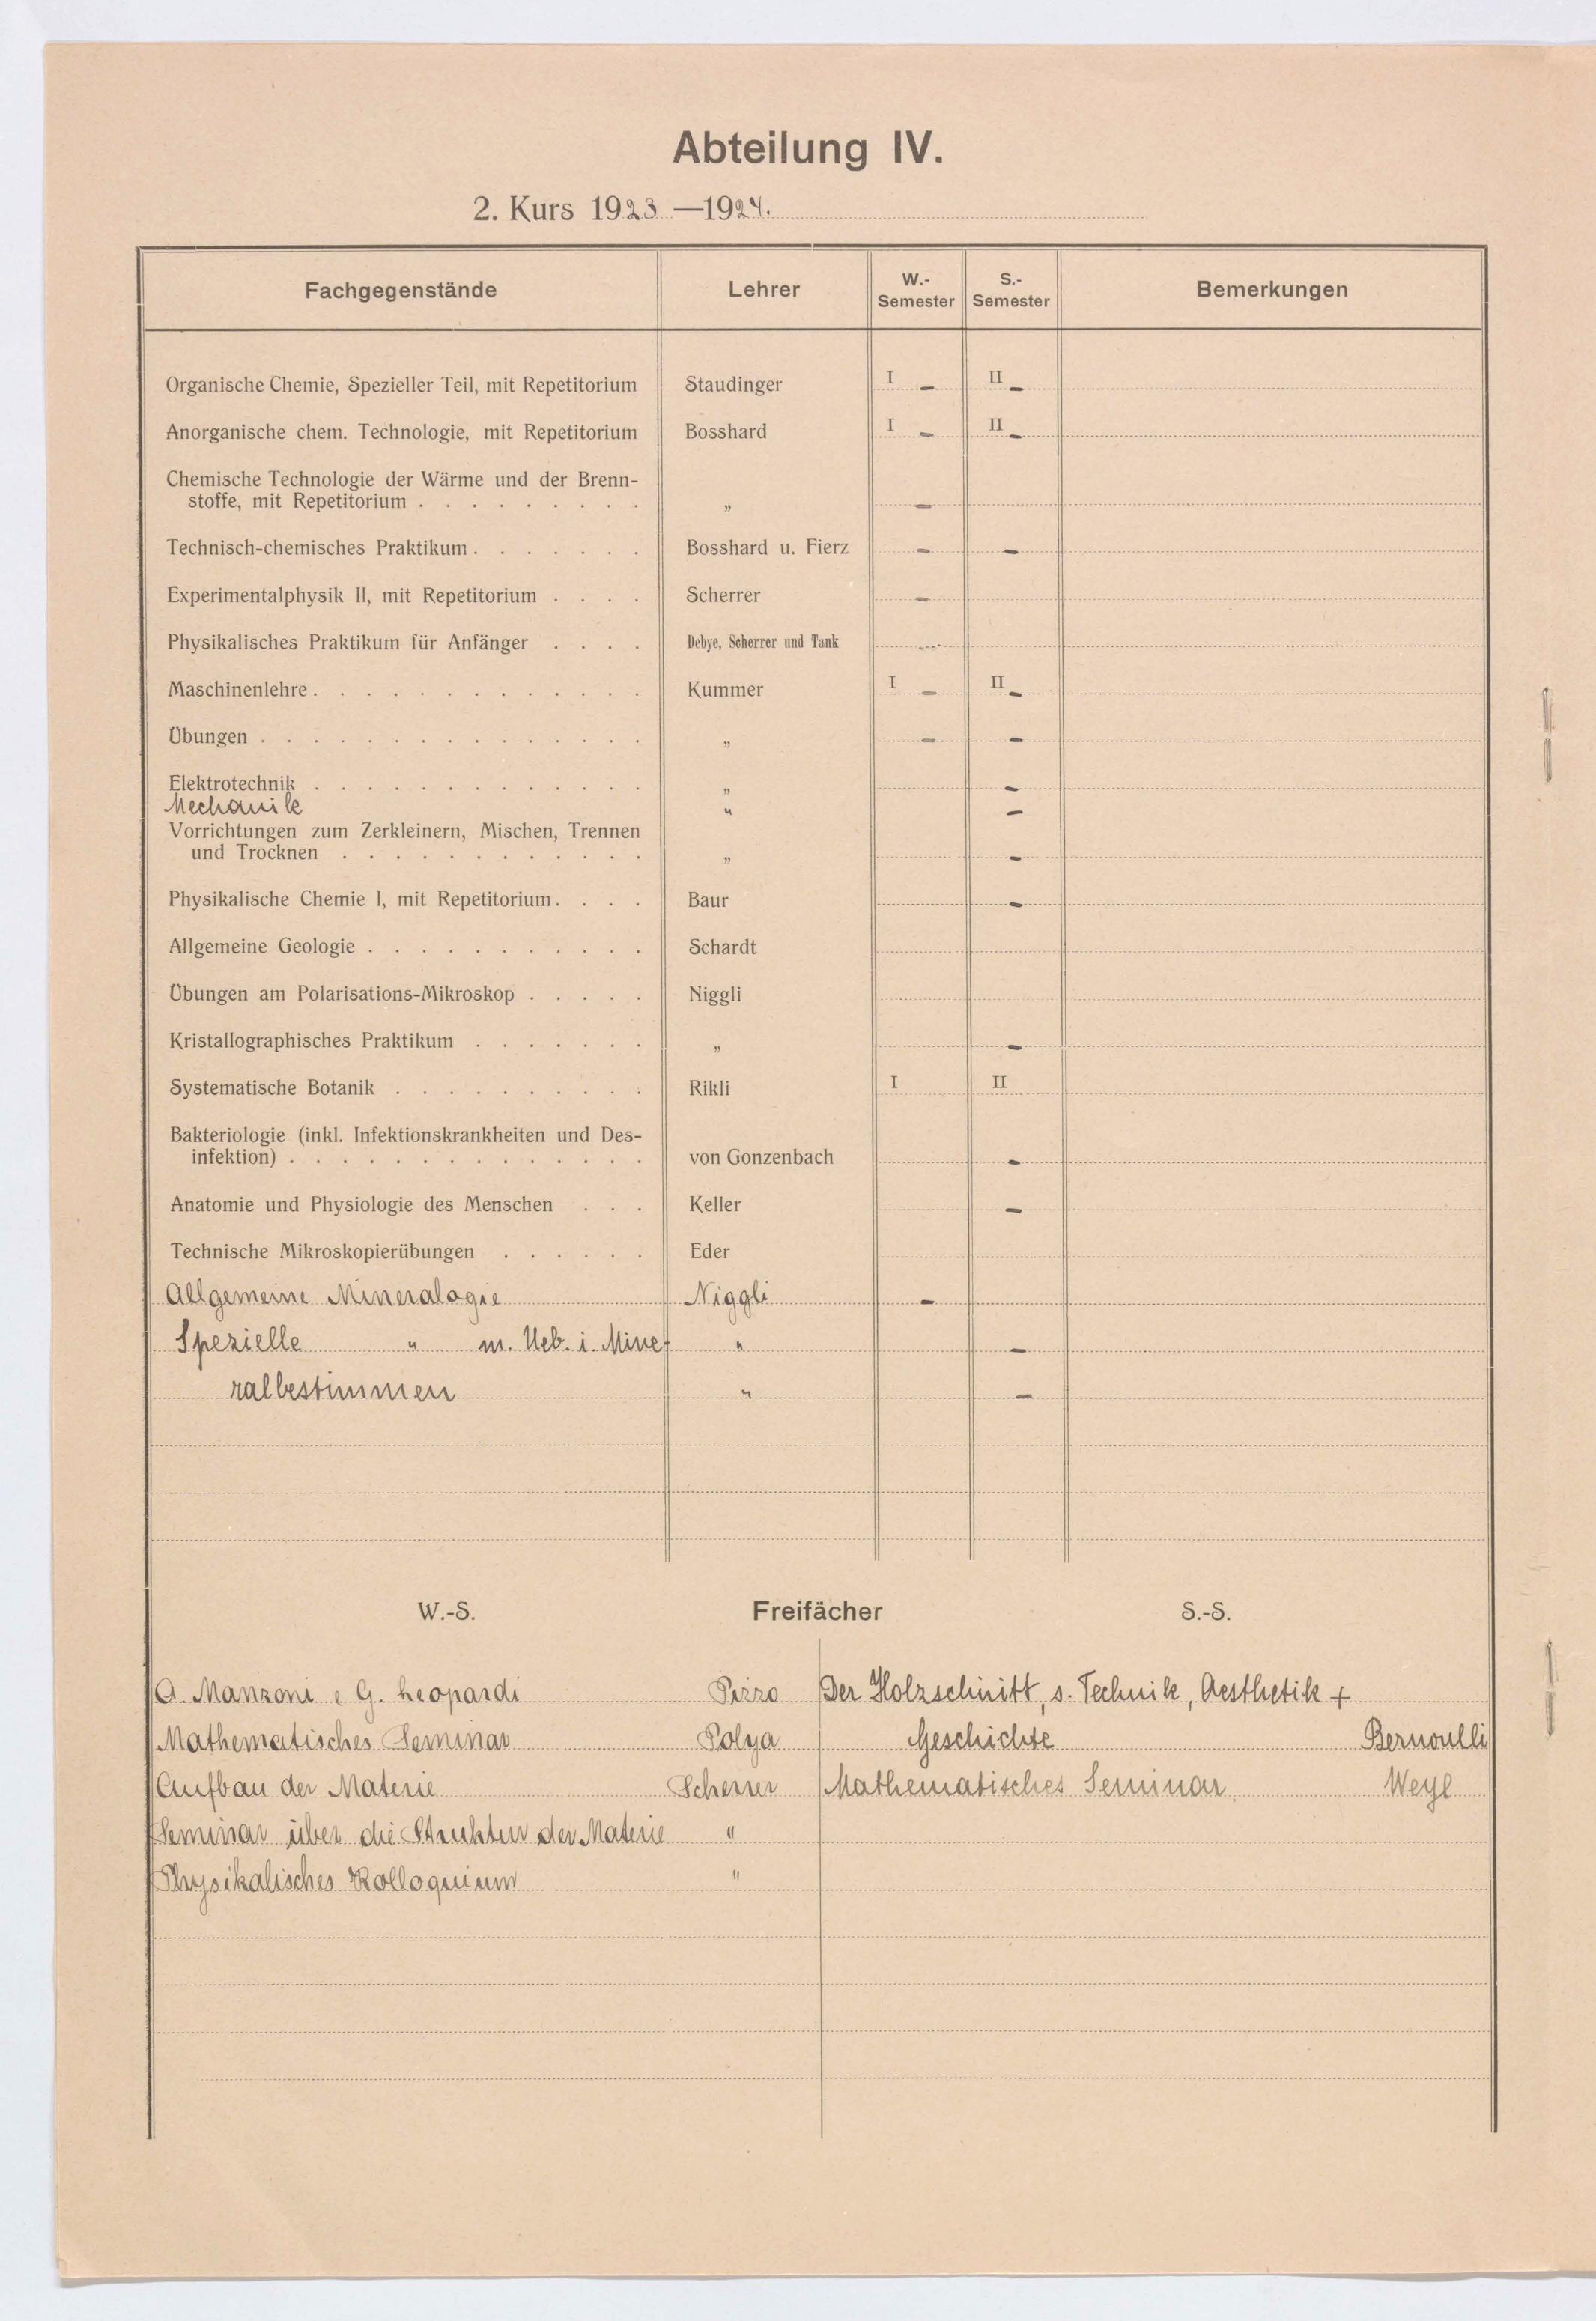 Abteilung IV.
2. Kurs 1923 —1924.
Fachgegenstände Lehrer W.-Semester S.-Semester Bemerkungen
Organische Chemie, Spezieller Teil, mit Repetitorium Staudinger I - II -
Anorganische chem. Technologie, mit Repetitorium Bosshard I - II -
Chemische Technologie der Wärme und der Brenn-
stoffe, mit Repetitorium . . . . . . . . . „ -
Technisch-chemisches Praktikum . . . . . . . Bosshard u. Fierz - -
Experimentalphysik II, mit Repetitorium . . . . Scherrer -
Physikalisches Praktikum für Anfänger . . . . Debye, Scherrer und Tank -
Maschinenlehre . . . . . . . . . . . . . Kummer I - II -
Übungen . . . . . . . . . . . . . . . „ - -
Elektrotechnik . . . . . . . . . . . . . „ -
Mechanik " -
Vorrichtungen zum Zerkleinern, Mischen, Trennen
und Trocknen . . . . . . . . . . . . „ -
Physikalische Chemie I, mit Repetitorium . . . . Baur -
Allgemeine Geologie . . . . . . . . . . . Schardt
Übungen am Polarisations-Mikroskop . . . . . Niggli
Kristallographisches Praktikum . . . . . . . „ -
Systematische Botanik . . . . . . . . . . Rikli I II
Bakteriologie (inkl. Infektionskrankheiten und Des-
infektion) . . . . . . . . . . . . . . von Gonzenbach -
Anatomie und Physiologie des Menschen . . . Keller -
Technische Mikroskopierübungen . . . . . . Eder
Allgemeine Mineralogie Niggli -
Spezielle " m. Ueb. i. Mine- " -
ralbestimmen " -
W.-S. Freifächer S.-S.
A. Manzoni e G. Leopardi Pizzo Der Holzschnitt, s. Technik, Aesthetik +
Mathematisches Seminar Polya Geschichte Bernoulli
Aufbau der Materie Scherrer Mathematisches Seminar Weyl
Seminar über die Struktur der Materie "
Physikalisches Kolloquium "